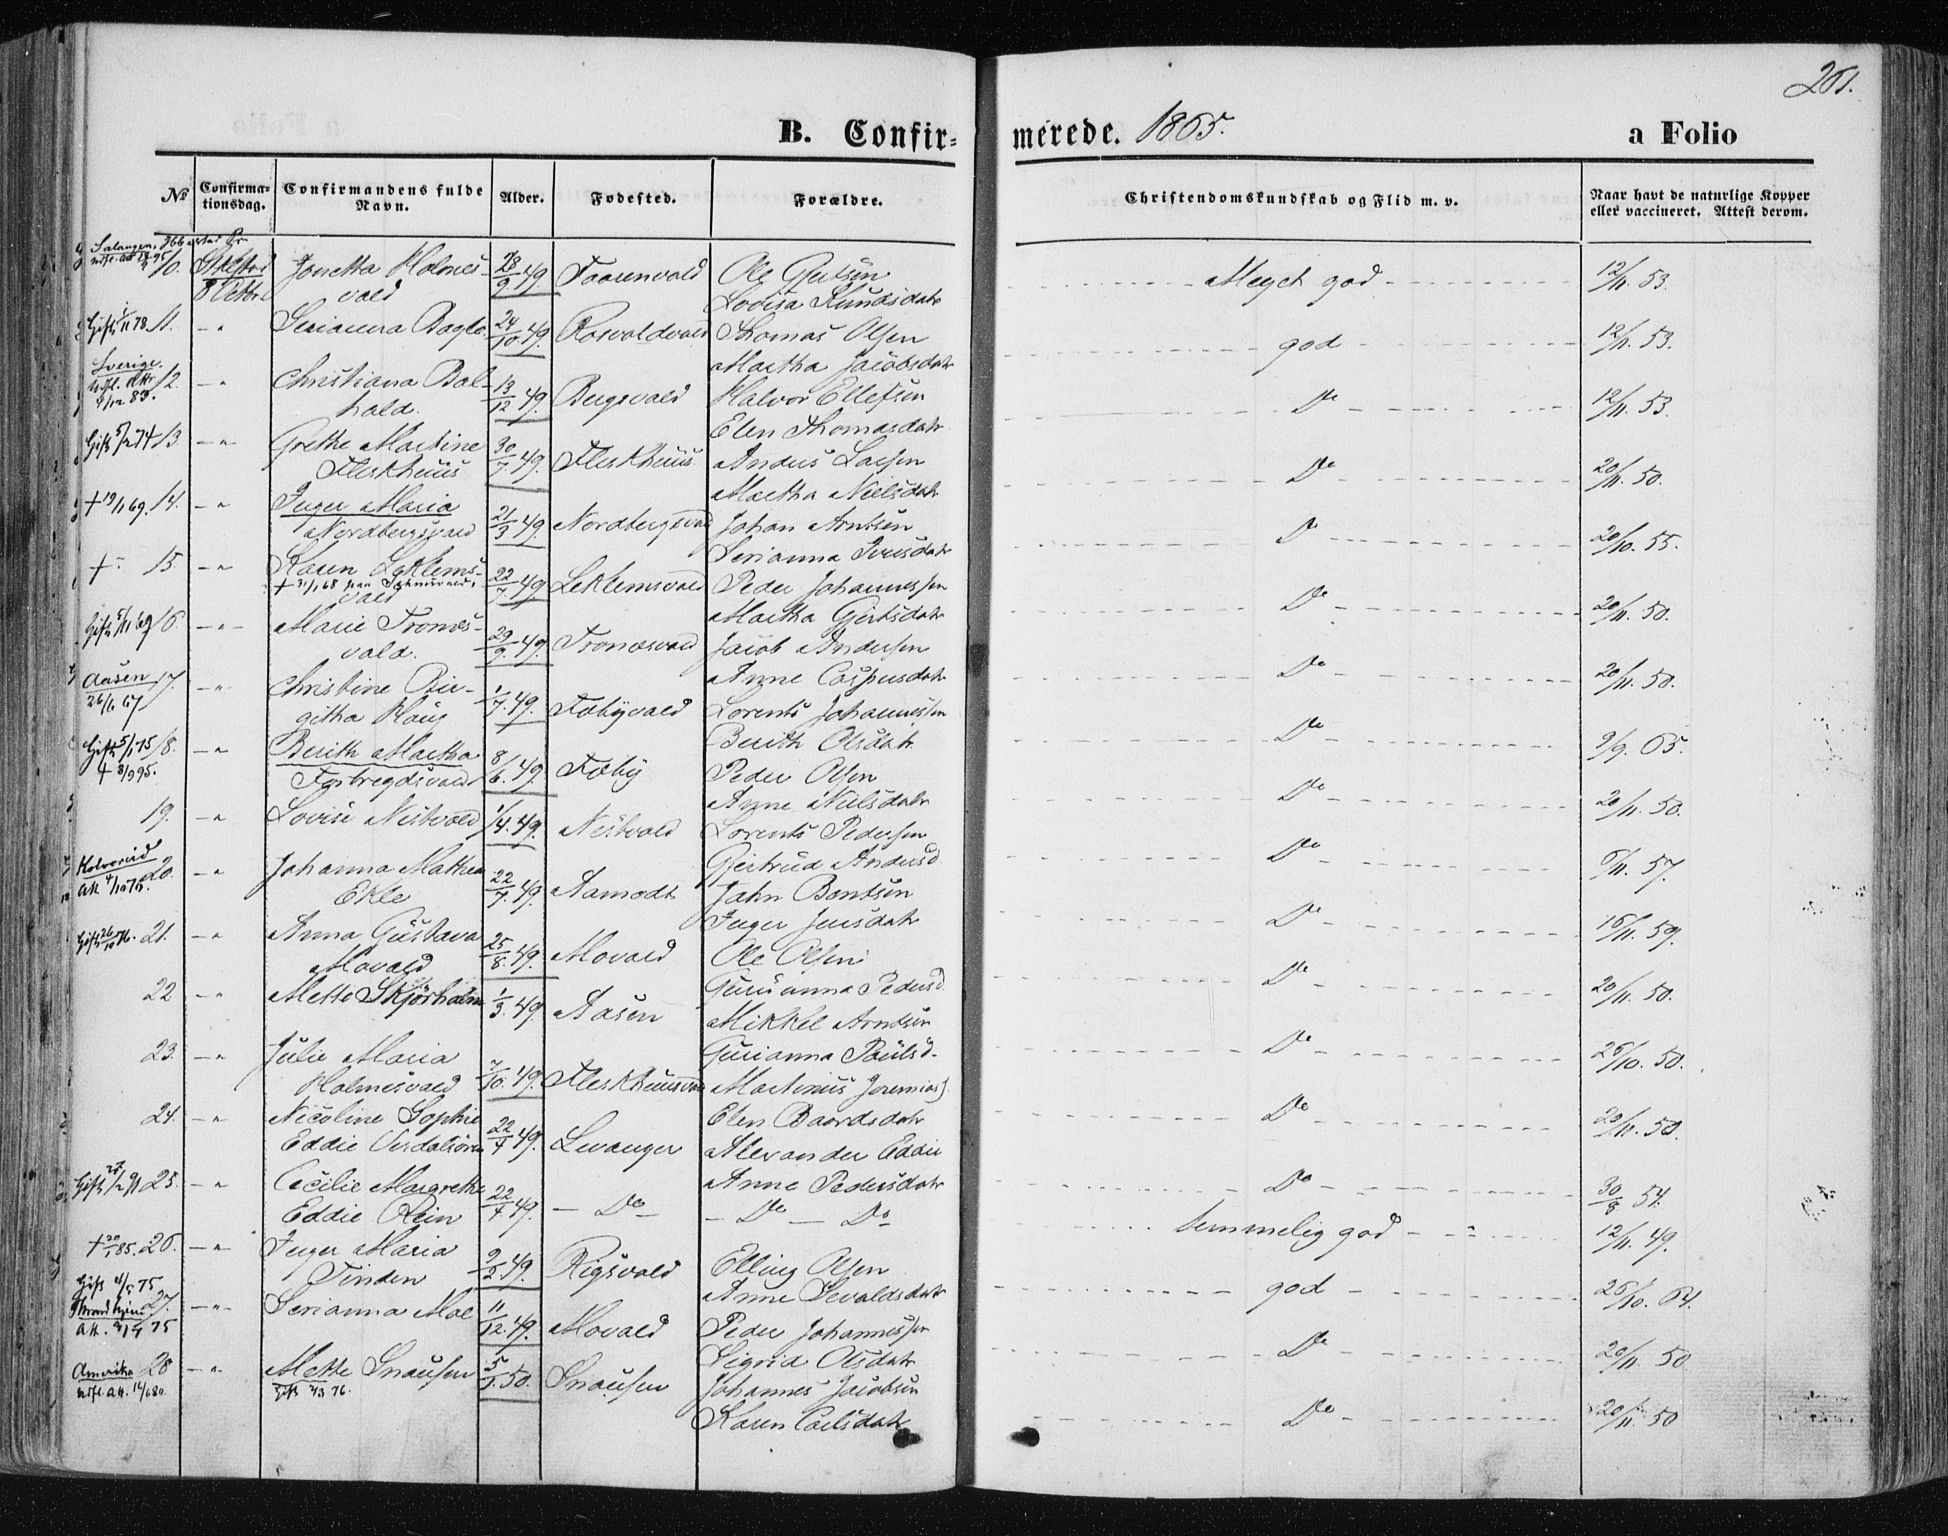 201.
B. Confir= merede. 1865. a Folio
№ Confirma-tionsdag. Confirmandens fulde Navn. Alder. Fødested. Forældre. Christendomskundskab og Flid m. v. Naar havt de naturlige Kopper eller vaccineret. Attest derom.
10. 8 Octbr Jonetta Holmes- 28/9 49 Ole
vald Lovisa Knudsdatr Meget god 12/11. 53.
Gift 11. - " Serianna 24/10 49. Thomas Olsen
Martha Jacobsdatr god 12/11. 53.
Sverige. 12. - " Christiana Bal- 13/12 49. Bergsvald Halvor Ellefsen
hald. Elen Thomasdatr Do 12/11. 53.
Gift 5/2 74 13 - " Grethe Martine 30/7. 49. Fleskhuus Anders Larsen
Fleskhuus Martha Nielsdatr Do 20/11. 50.
+ 19/1 69. 14. - " Inger Maria 21/3 49. Nordbergsvald Johan Arntsen
Nordbergsvald Serianna Iversdatr Do 20/10. 55.
+ 15 - " Karen Leklems- 22/7. 49 Leklemsvald Peder Johannessen
vald Martha Gjertsdatr Do 20/11. 50.
Gift 69 16. - " Marie Tromes- 29/9. 49. Tromesvald Jacob Andersen
vald. Anne Caspersdatr Do 20/11. 50.
Aasen 26/6 67 17. - " Christine Bir- 1/7. 49. Tobyvald Lorents Johannessen
githa Haug Berith Olsdatr Do 9/9. 65.
Gift 5/1 75 18. - " Berith Martha 8/6. 49. Toby Peder Olsen
Forbregdsvald Anne Nielsdatr Do 20/11. 50.
19. - " Lovise Nestvald 1/4. 49. Nestvald Lorents Pedersen
Gjertrud Andersd Do 57.
Kolvereid 20. - " Johanna Mathea 22/7. 49. Aamodt John Bentsen
Ekle Inger Jensdatr Do 16/11. 59.
Gift 26/10 76. 21. - " Anna Gustava 25/8. 49. Movald Ole Olsen
Movald Gurianna Pedersd Do 20/11. 50.
22 - " Mette Skjörholm 1/3. 49. Aasen Mikkel Arntsen
Gurianna Paulsd. Do 26/10. 50.
23. - " Julie Maria 7/10. 49. Fleskhuusvald Martinus Jeremiass.
Holmesvald Elen Baardsdatr Do 20/11. 50.
24. - " Nicoline Sophie 22/7 49. Levanger Alexander Eddie
Eddie Verdalsören Anne Pedersdatr Do 30/8 54.
Gift 25. - " Cecilie Margrethe 22/7 49. - Do - - Do - Do
Eddie Rein temmelig god 12/11. 49.
+ 20/1 85. 26. - " Inger Maria 9/2 49. Rigsvald Elling Olsen
Tinden Anne Sevaldsdatr god 26/10. 64.
Gift 4/5 75 27. - " Serianna Moe 11/12. 49. Movald Peder Johannessen
Sigrid Olsdatr Do 20/11. 50
Amerika 28 - " Mette Snausen 5/1. 50. Snausen Johannes Jacobsen
Karen Carlsdatr Do 20/11. 50